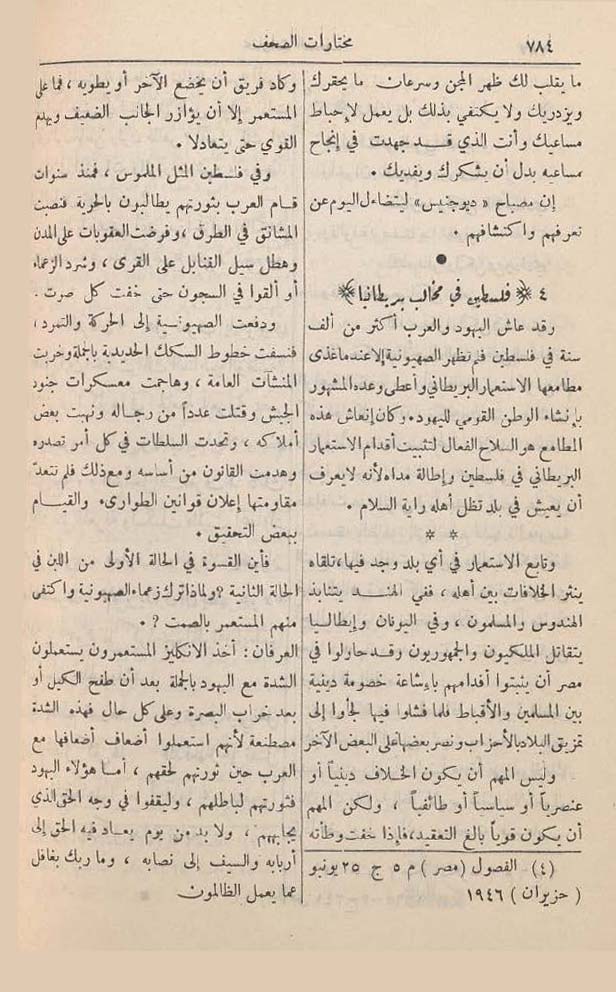 ٧٨٤
مختارات الصحف
ما يقلب لك ظهر المجن وسرعان ما يحقرك
ويزدريك ولا يكتفي بذلك بل يعمل لإحباط
مساعيك وأنت الذي قد جهدت في إنجاح
مساعيه بدل أن يشكرك ويفديك .
إن مصباح « ديوجنيس » ليتضاءل اليوم عن
تعرفهم واكتشافهم .
٤ ﴿ فلسطين في مخالب بريطانيا ﴾
رقد عاش اليهود والعرب أكثر من ألف
سنة في فلسطين فلم تظهر الصهيونية إلا عندما غذى
مطامعها الاستعمار البريطاني وأعطى وعده المشهور
بإنشاء الوطن القومي لليهود . وكان إنعاش هذه
المطامع هو السلاح الفعال لتثبيت أقدام الاستعمار
البريطاني في فلسطين وإطالة مداه لأنه لا يعرف
أن يعيش في بلد تظل أهله راية السلام .
* *
وتابع الاستعمار في أي بلد وجد فيها ، تلقاه
ينثر الخلافات بين أهله ، ففي الهند يتنابذ
الهندوس والمسلمون ، وفي اليونان وإيطاليا
يتقاتل الملكيون والجمهوريون وقد حاولوا في
مصر أن يثبتوا أقدامهم بإشاعة خصومة دينية
بين المسلمين والأقباط فلما فشلوا فيها لجأوا إلى
تمزيق البلاد بالأحزاب ونصر بعضها على البعض الآخر
وليس المهم أن يكون الخلاف دينياً أو
عنصرياً أو سياسياً أو طائفياً ، ولكن المهم
أن يكون قوياً بالغ التعقيد ، فإذا خفت وطأته
(٤) الفصول ( مصر ) م ٥ ج ٢٥ يونيو
( حزيران ) ١٩٤٦
وكاد فريق أن يخضع الآخر أو يطويه ، فما على
المستعمر إلا أن يؤازر الجانب الضعيف ويهدم
القوي حتى يتعادلا .
وفي فلسطين المثل الملموس ، فمنذ سنوات
قام العرب بثورتهم يطالبون بالحرية فنصبت
المشانق في الطرق ، وفرضت العقوبات على المدن
وهطل سيل القنابل على القرى ، وشرد الزعماء
أو ألقوا في السجون حتى خفت كل صوت .
ودفعت الصهيونية إلى الحركة والتمرد ،
فنسفت خطوط السكك الحديدية بالجملة وخربت
المنشآت العامة ، وهاجمت معسكرات جنود
الجيش وقتلت عدداً من رجاله ونهبت بعض
أملاكه ، وتحدت السلطات في كل أمر تصدره
وهدمت القانون من أساسه ومع ذلك فلم تتعد
مقاومتها إعلان قوانين الطوارىء والقيام
ببعض التحقيق .
فأين القسوة في الحالة الأولى من اللين في
الحالة الثانية ? ولماذا ترك زعماء الصهيونية واكتفى
منهم المستعمر بالصمت ? .
العرفان : أخذ الانكليز المستعمرون يستعملون
الشدة مع اليهود بالجملة بعد أن طفح الكيل أو
بعد خراب البصرة وعلى كل حال فهذه الشدة
مصطنعة لأنهم استعملوا أضعاف أضعافها مع
العرب حين ثورتهم لحقهم ، أما هؤلاء اليهود
فثورتهم لباطلهم ، وليقفوا في وجه الحق الذي
يجابههم ، ولا بد من يوم يعاد فيه الحق إلى
أربابه والسيف إلى نصابه ، وما ربك بغافل
عما يعمل الظالمون